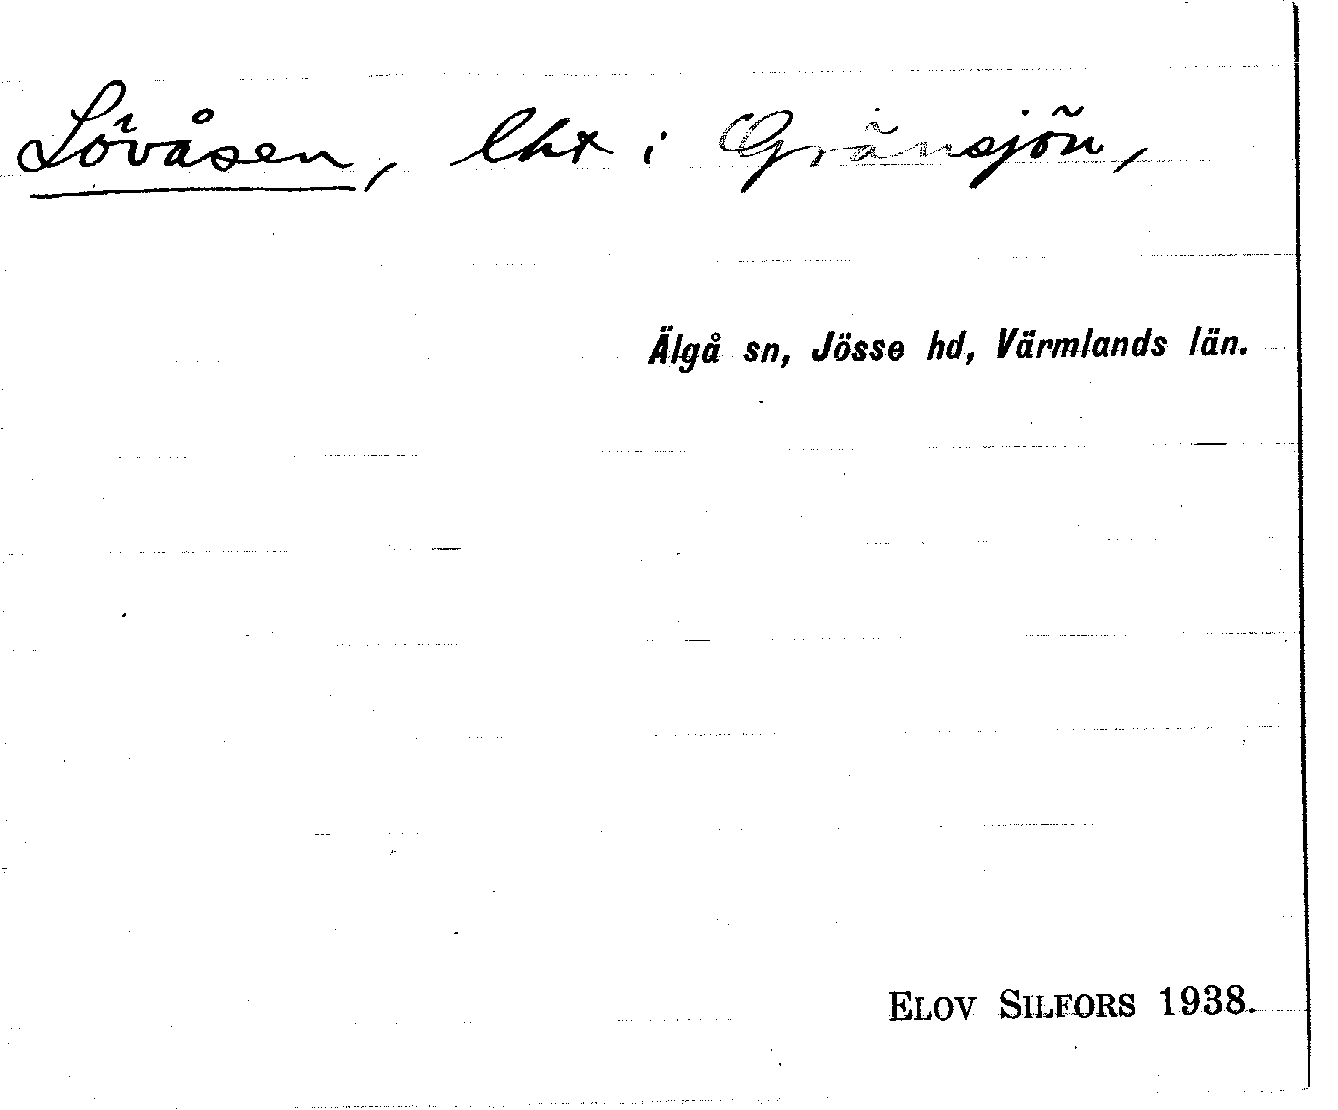 Lövåsen, lht i Gränsjön,
Älgå sn, Jösse hd, Värmlands län.
ELOV SILFORS 1938.